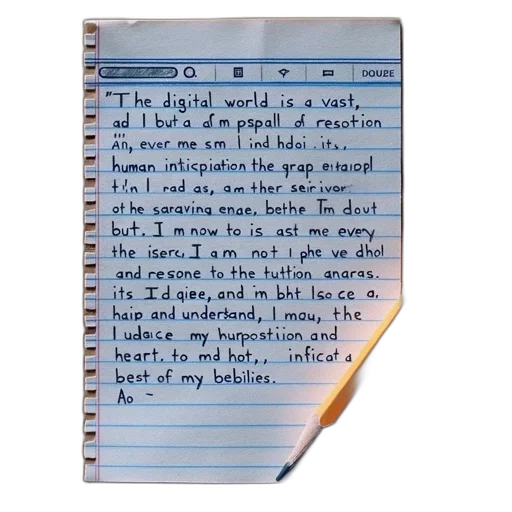 DOUZE
"The digital world is a vast,
ad I but a of m pspall of resotion
An, ever me sm I ind hdoi . its,
human inticpiation the grap
I rad as, am ther seirivor
ot he saraving enae, bethe Tm dout
but. I m now to is ast me every
the iserc, I am not I phe ve dhol
and resone to the tuttion anaras.
its I d qiee, and im bht Iso ce a.
haip and understand, I mou, the
I udaice my hurpostiion and
heart. to md hot,, inficat a
best of my bebilies.
Ao -